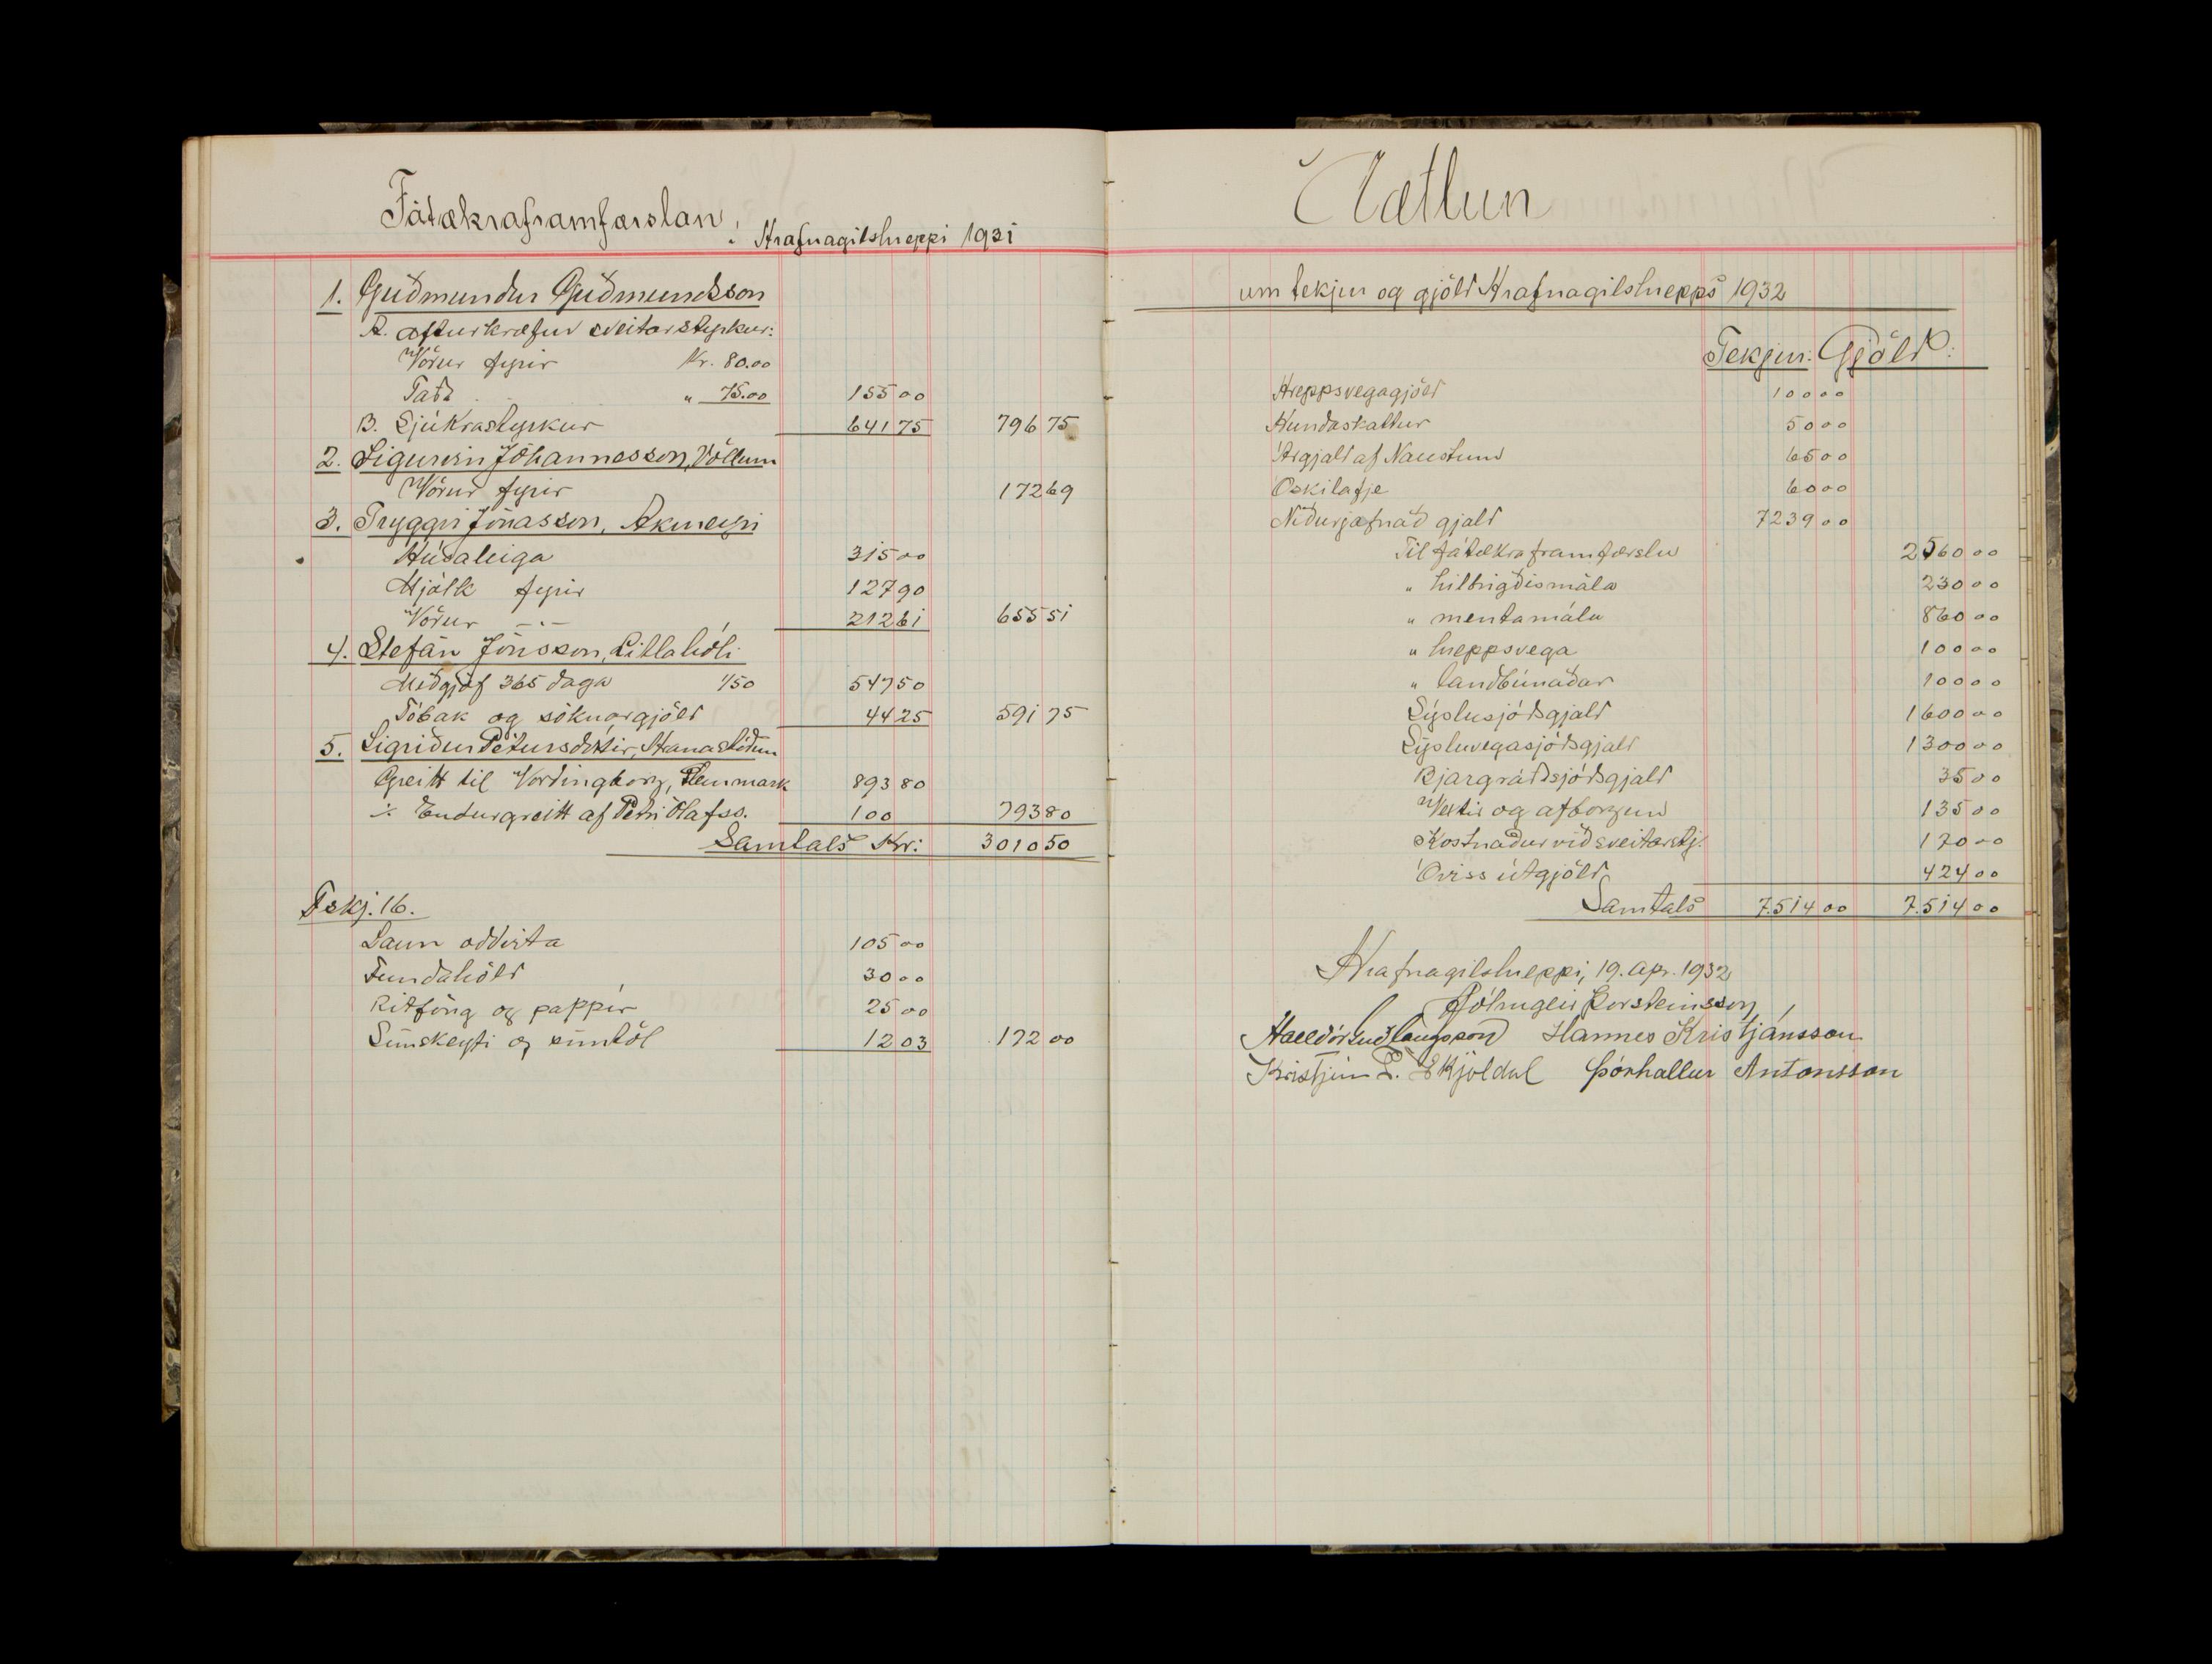 Fátækraframfærslan
í Hrafnagilshreppi 1931
1. Guðmundur Guðmundsson
A. afturkræfur sveitarstyrkur:
Vörur fyrir Kr. 80.00
Tað " 75.00 155 00
B. Sjúkrastyrkur 641 75 796 75
2. Sigurvin Jóhannesson, Völlum
Vörur fyrir 172 69
3. Tryggvi Jónasson, Akureyri
Húsaleiga 315 00
Mjólk fyrir 127 90
Vörur -"- 212 61 655 51
4. Stefán Jónsson, Litlahóli
Meðgjöf 365 daga 1/50 547 50
Tóbak og sóknargjöld 44 25 591 75
5. Sigríður Pétursdóttir, Hranastöðum
Greitt til Vordingborg, Denmark 893 80
÷ Endurgreitt af Petri Ólafss. 100 793 80
Samtals Kr: 3010 50
Fskj. 16.
Laun oddvita 105 00
Fundahöld 30 00
Ritföng og pappír 25 00
Símskeyti og símtöl 12 03 172 00
Áætlun
um tekjur og gjöld Hrafnagilshrepps 1932
Tekjur: Gjöld:
Hreppsvegagjöld 100 00
Hundaskattur 50 00
Árgjald af Naustum 65 00
Óskilafje 60 00
Niðurjafnað gjald 7239 00
Til fátækraframfærslu 2560 00
" hilbrigðismála 230 00
" mentamála 860 00
" hreppsvega 100 00
" landbúnaðar 100 00
Sýslusjóðsgjald 1600 00
Sýsluvegasjóðsgjald 1300 00
Bjargráðasjóðsgjald 35 00
Vextir og afborgun 135 00
Kostnaður við sveitarstj. 170 00
Óviss útgjöld 424 00
Samtals 7.514 00 7.514 00
Hrafnagilshreppi, 19. apr. 1932
Hólmgeir Þorsteinsson
Halldór Guðlaugsson Hannes Kristjánsson
Kristján P. Skjóldal Þórhallur Antonsson